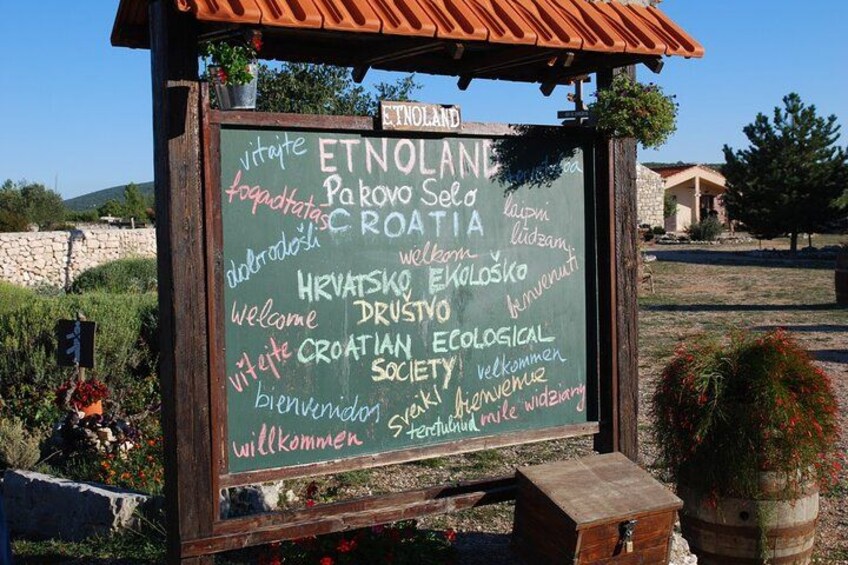 ETNOLAND
vitajte
ETNOLAND
fogadtatás
Pakovo Selo
CROATIA
laipni
lūdzam
dobrodošli
welkom
HRVATSKO EKOLOŠKO
DRUŠTVO
benvenuti
welcome
CROATIAN ECOLOGICAL
SOCIETY!
vítejte
velkommen
bienvenidos
sveiki
bienvenue
mile widziany
teretulnud
willkommen